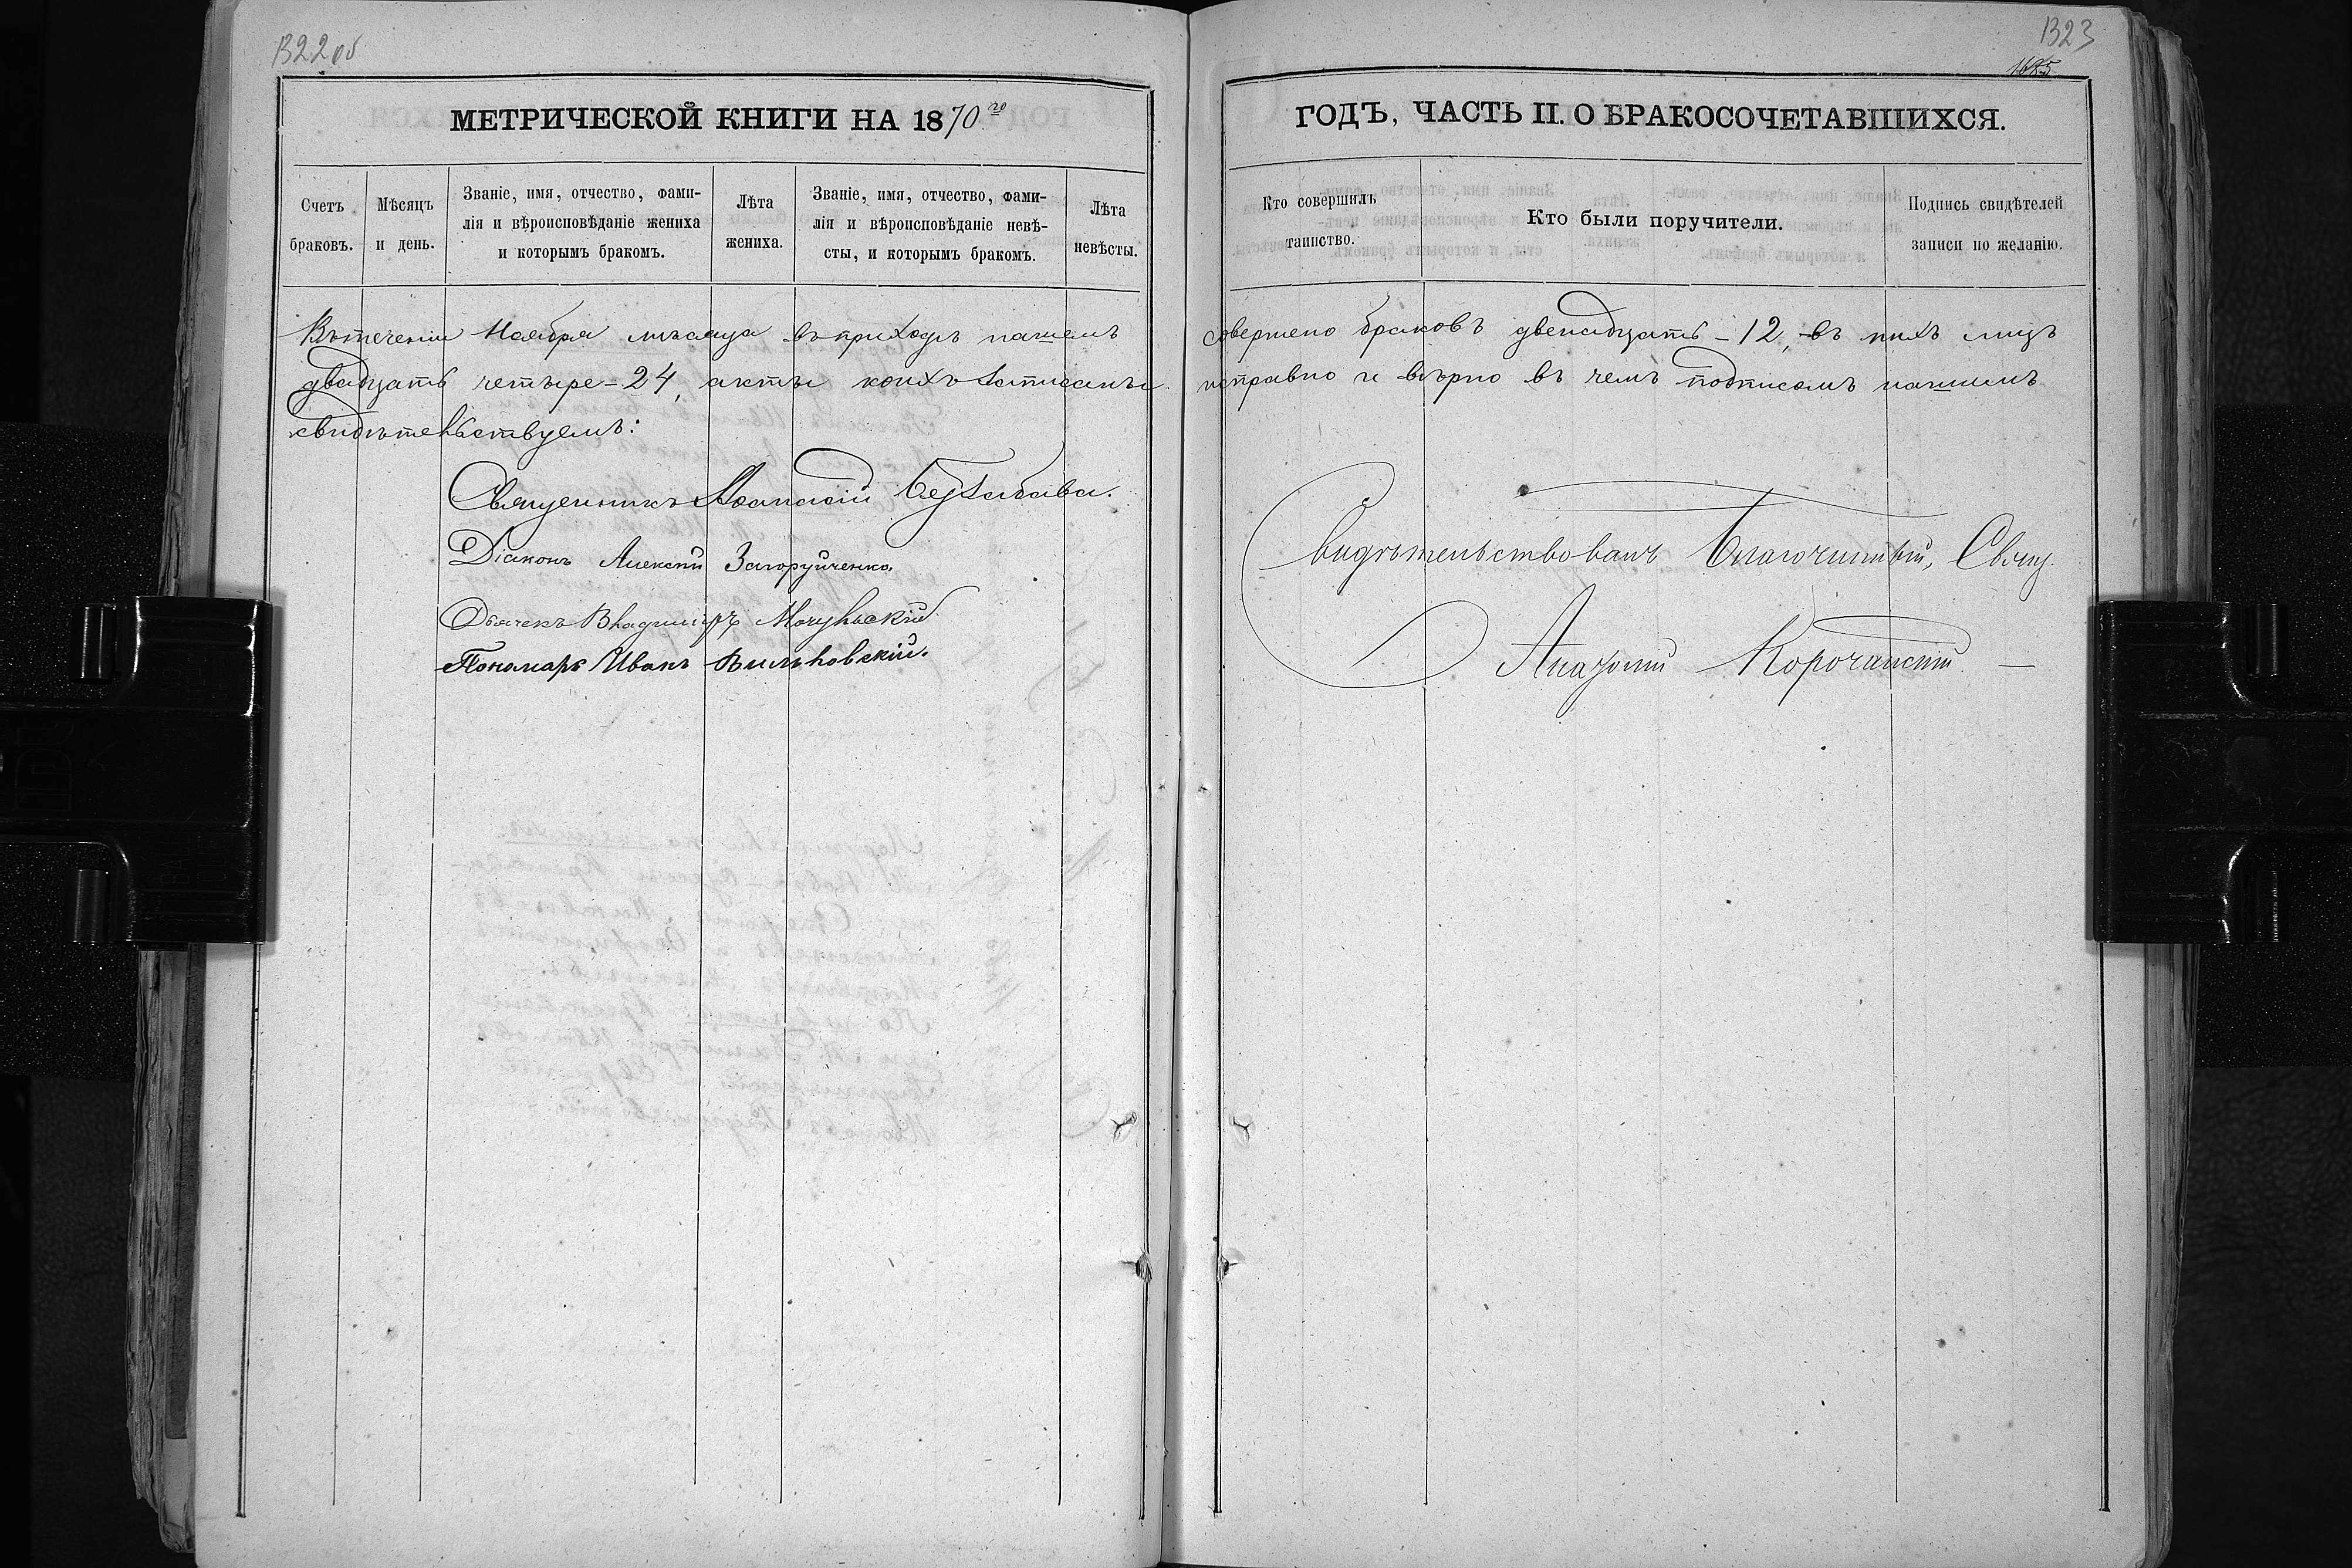 1322 об
МЕТРИЧЕСКОЙ КНИГИ НА 1870го
Счетъ браковъ.
Мѣсяцъ и день.
Званіе, имя, отчество, фами-
лія и вѣроисповѣданіе жениха
и которымъ бракомъ.
Лѣта жениха.
Званіе, имя, отчество, фами-
лія и вѣроисповѣданіе невѣ-
сты, и которымъ бракомъ.
Лѣта невѣсты.
Въ теченіи Ноября мѣсяца въ приходѣ нашемъ
двадцать четыре - 24, акты коихъ записаны
свидѣтельствуемъ:
Священникъ Афанасій
Діаконъ Алексѣй
Дьячекъ Владиміръ Мочульскій
Пономарь Иванъ Вильховскій.
1323
1685
ГОДЪ, ЧАСТЬ II. О БРАКОСОЧЕТАВШИХСЯ.
Кто совершилъ
таинство.
Кто были поручители.
Подпись свидѣтелей
записи по желанію.
совершено браковъ двенадцать - 12, въ нихъ лицъ
исправно и вѣрно въ чемъ подписомъ нашимъ
Свидѣтельствовалъ Благочинный, Свящ.
Корочанскій